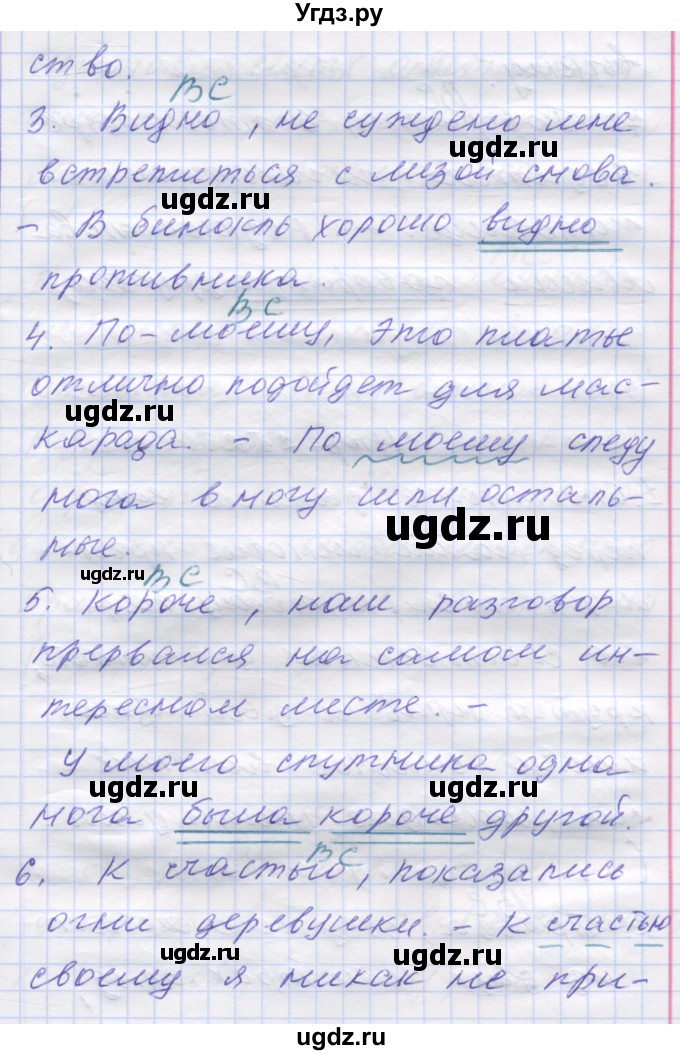 Угдз.ру
ство.
ВС
3. Видно, не суждено мне
ugdz.ru
встретиться с Лизой снова.
ugdz.ru
- В бинокль хорошо видно
противника.
ugdz.ru
ВС
4. По-моему, это платье
отлично подойдет для мас-
ugdz.ru
карада. - По моему следу
нога в ногу шли осталь-
ugdz.ru
ные.
ugdz.ru
ВС
5. Короче, наш разговор
прервался на самом ин-
ugdz.ru
тересном месте. -
У моего спутника одна
ugdz.ru
ugdz.ru
нога была короче другой.
ВС
6. К счастью, показались
огни деревушки. - К счастью
ugdz.ru
ugdz.ru
своему я никак не при-
ugdz.ru